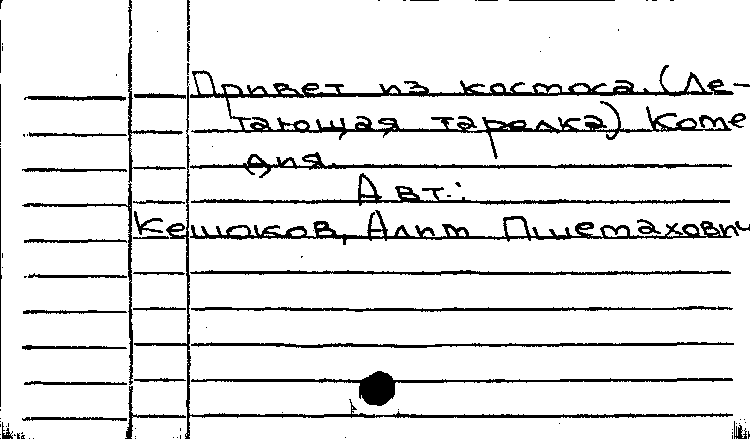 Привет из космоса. (Ле-
тающая тарелка) Коме
дия.
Авт.:
Кешоков, Алим Пшемахович